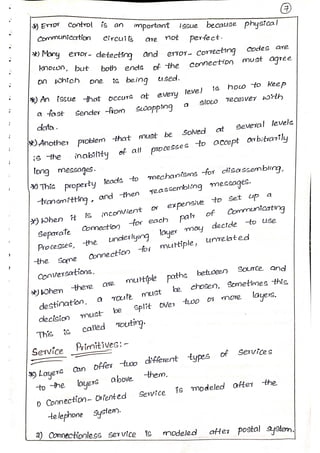 7
*) Error control is an important issue because physical
communication circuits are not perfect.
*) Many error-detecting and error-Correcting codes are
known, but both ends of the connection must agree
on which one is being used.
*) An issue that occurs at every level is how to keep
a fast sender from swapping a slow receiver with
data.
*) Another problem that must be solved at several levels
is the inability of all processes to accept arbitrarily
long messages.
*) This property leads to mechanisms for disassembling,
transmitting, and then reassembling messages.
*) When it is inconvient or expensive to set up a
separate connection for each pair of communicating
processes, the underlying layer may decide to use
the same connection for multiple, unrelated
conversations.
*) When there are multiple paths between source and
destination, a route must be chosen, sometimes this
decision must be split over two or more layers.
This is called routing.
Service Primitives:-
*) Layers can offer two different types of services
to the layers above them.
1) Connection-Oriented Service is modeled after the
telephone system.
2) Connectionless service is modeled after postal system.